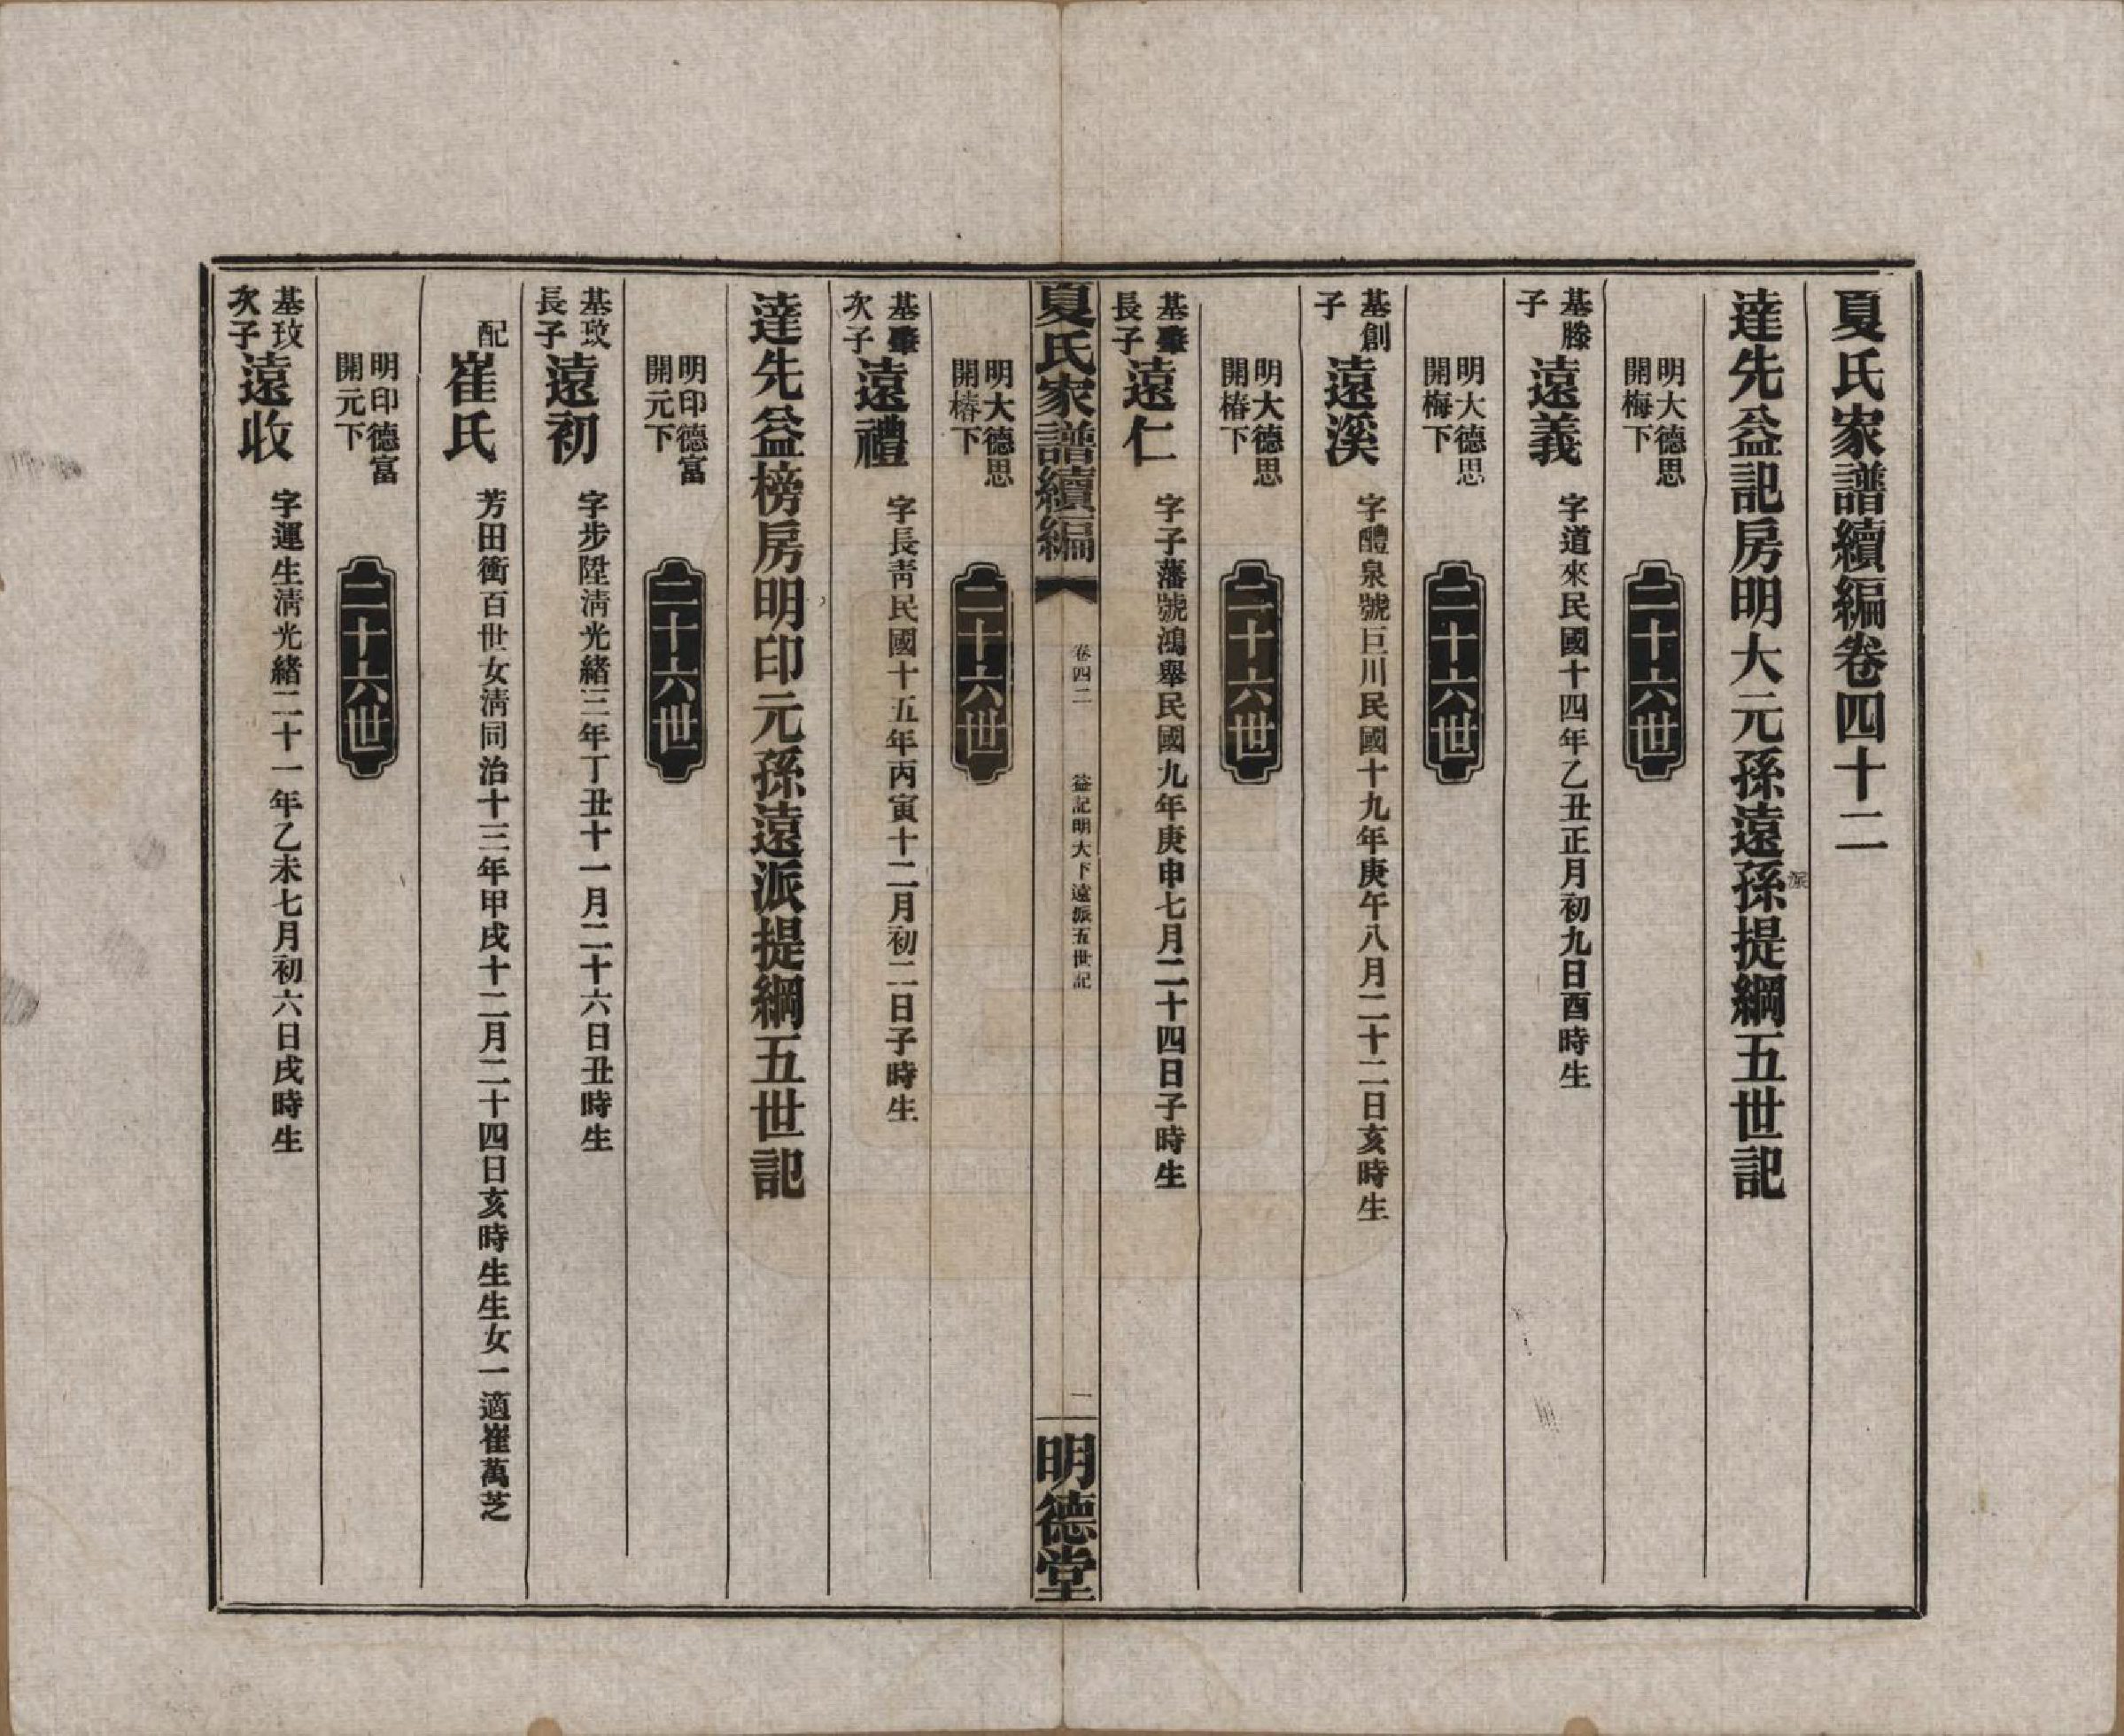 夏氏家譜續編卷四十二
達先益記房明大元孫遠孫提綱五世記
派
明大德思
開梅下
二十六世
基滕
子
遠義
字道來民國十四年乙丑正月初九日酉時生
明大德思
開梅下
二十六世
基創
子
遠溪
字醴泉號巨川民國十九年庚午八月二十二日亥時生
明大德思
開椿下
二十六世
基肇
長子
遠仁
字子藩號鴻舉民國九年庚申七月二十四日子時生
夏氏家譜續編
卷四二
益記明大下遠派五世記
一
明德堂
明大德思
開椿下
二十六世
基肇
次子
遠禮
字長青民國十五年丙寅十二月初二日子時生
達先益榜房明印元孫遠派提綱五世記
明印德富
開元下
二十六世
基玫
長子
遠初
字步陞清光緒三年丁丑十一月二十六日丑時生
配
崔氏
芳田衝百世女清同治十三年甲戌十二月二十四日亥時生生女一適崔萬芝
明印德富
開元下
二十六世
基玫
次子
遠收
字運生清光緒二十一年乙未七月初六日戌時生